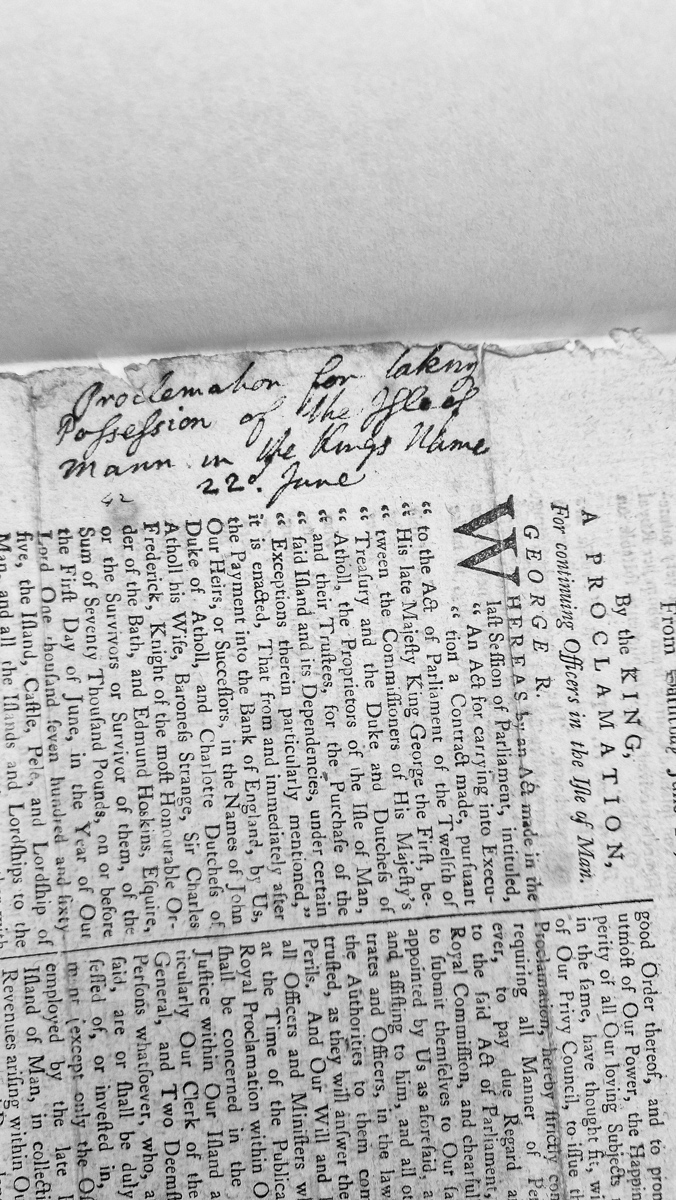 Proclemation for taking
Poſseſsion of the Iſle of
Mann in the Kings Name
22d. June
From Saturday, J
By the KING,
A PROCLAMATION,
For continuing Officers in the Iſle of Man.
GEORGE R.
WHEREAS by an Act made in the
laſt Seſſion of Parliament, intituled,
“ An Act for carrying into Execu-
“ tion a Contract made, purſuant
“ to the Act of Parliament of the Twelfth of
“ His late Majeſty King George the Firſt, be-
“ tween the Commiſſioners of His Majeſty's
“ Treaſury and the Duke and Dutcheſs of
“ Atholl, the Proprietors of the Iſle of Man,
“ and their Truſtees, for the Purchaſe of the
“ ſaid Iſland and its Dependencies, under certain
“ Exceptions therein particularly mentioned,”
it is enacted, That from and immediately after
the Payment into the Bank of England, by Us,
Our Heirs, or Succeſſors, in the Names of John
Duke of Atholl, and Charlotte Dutcheſs of
Atholl his Wife, Baroneſs Strange, Sir Charles
Frederick, Knight of the moſt Honourable Or-
der of the Bath, and Edmund Hoſkins, Eſquire,
or the Survivors or Survivor of them, of the
Sum of Seventy Thouſand Pounds, on or before
the Firſt Day of June, in the Year of Our
Lord One thouſand ſeven hundred and ſixty
five, the Iſland, Caſtle, Pele, and Lordſhip of
Man, and all the Iſlands and Lordſhips to the
good Order thereof, and to
utmoſt of Our Power, the
perity of all Our loving Subjects
in the ſame, have thought fit,
of Our Privy Council, to iſſue
Proclamation, hereby ſtrictly
requiring all Manner of
ever, to pay due Regard
to the ſaid Act of Parliament
Royal Commiſſion, and
to ſubmit themſelves to Our
appointed by Us as aforeſaid,
and aſſiſting to him, and all
trates and Officers, in the
the Authorities to them
truſted, as they will anſwer the
Perils. And Our Will and
all Officers and Miniſters
at the Time of the
Royal Proclamation within
ſhall be concerned in the
Juſtice within Our Iſland
ticularly Our Clerk of the
General, and Two
Perſons whatſoever, who,
ſaid, are or ſhall be duly
ſeſſed of, or inveſted in,
(except only the
employed by the late
Iſland of Man, in
Revenues ariſing within